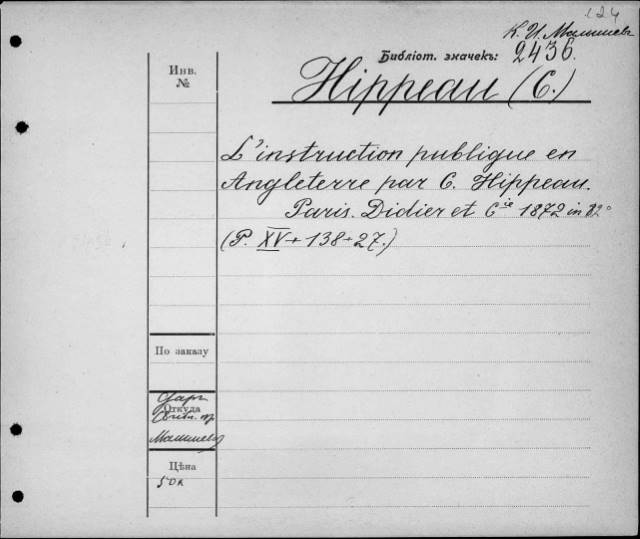 124
К. И. Малышевъ
Библіот. значекъ: 2436.
Инв.
№
Hippeau (C.)
L'instruction publique en
Angleterre par C. Hippeau.
Paris. Didier et Cie 1872 in 12°
(P. XV + 138 + 27.)
По заказу
Даръ
Откуда
Малышева
Цѣна
50к